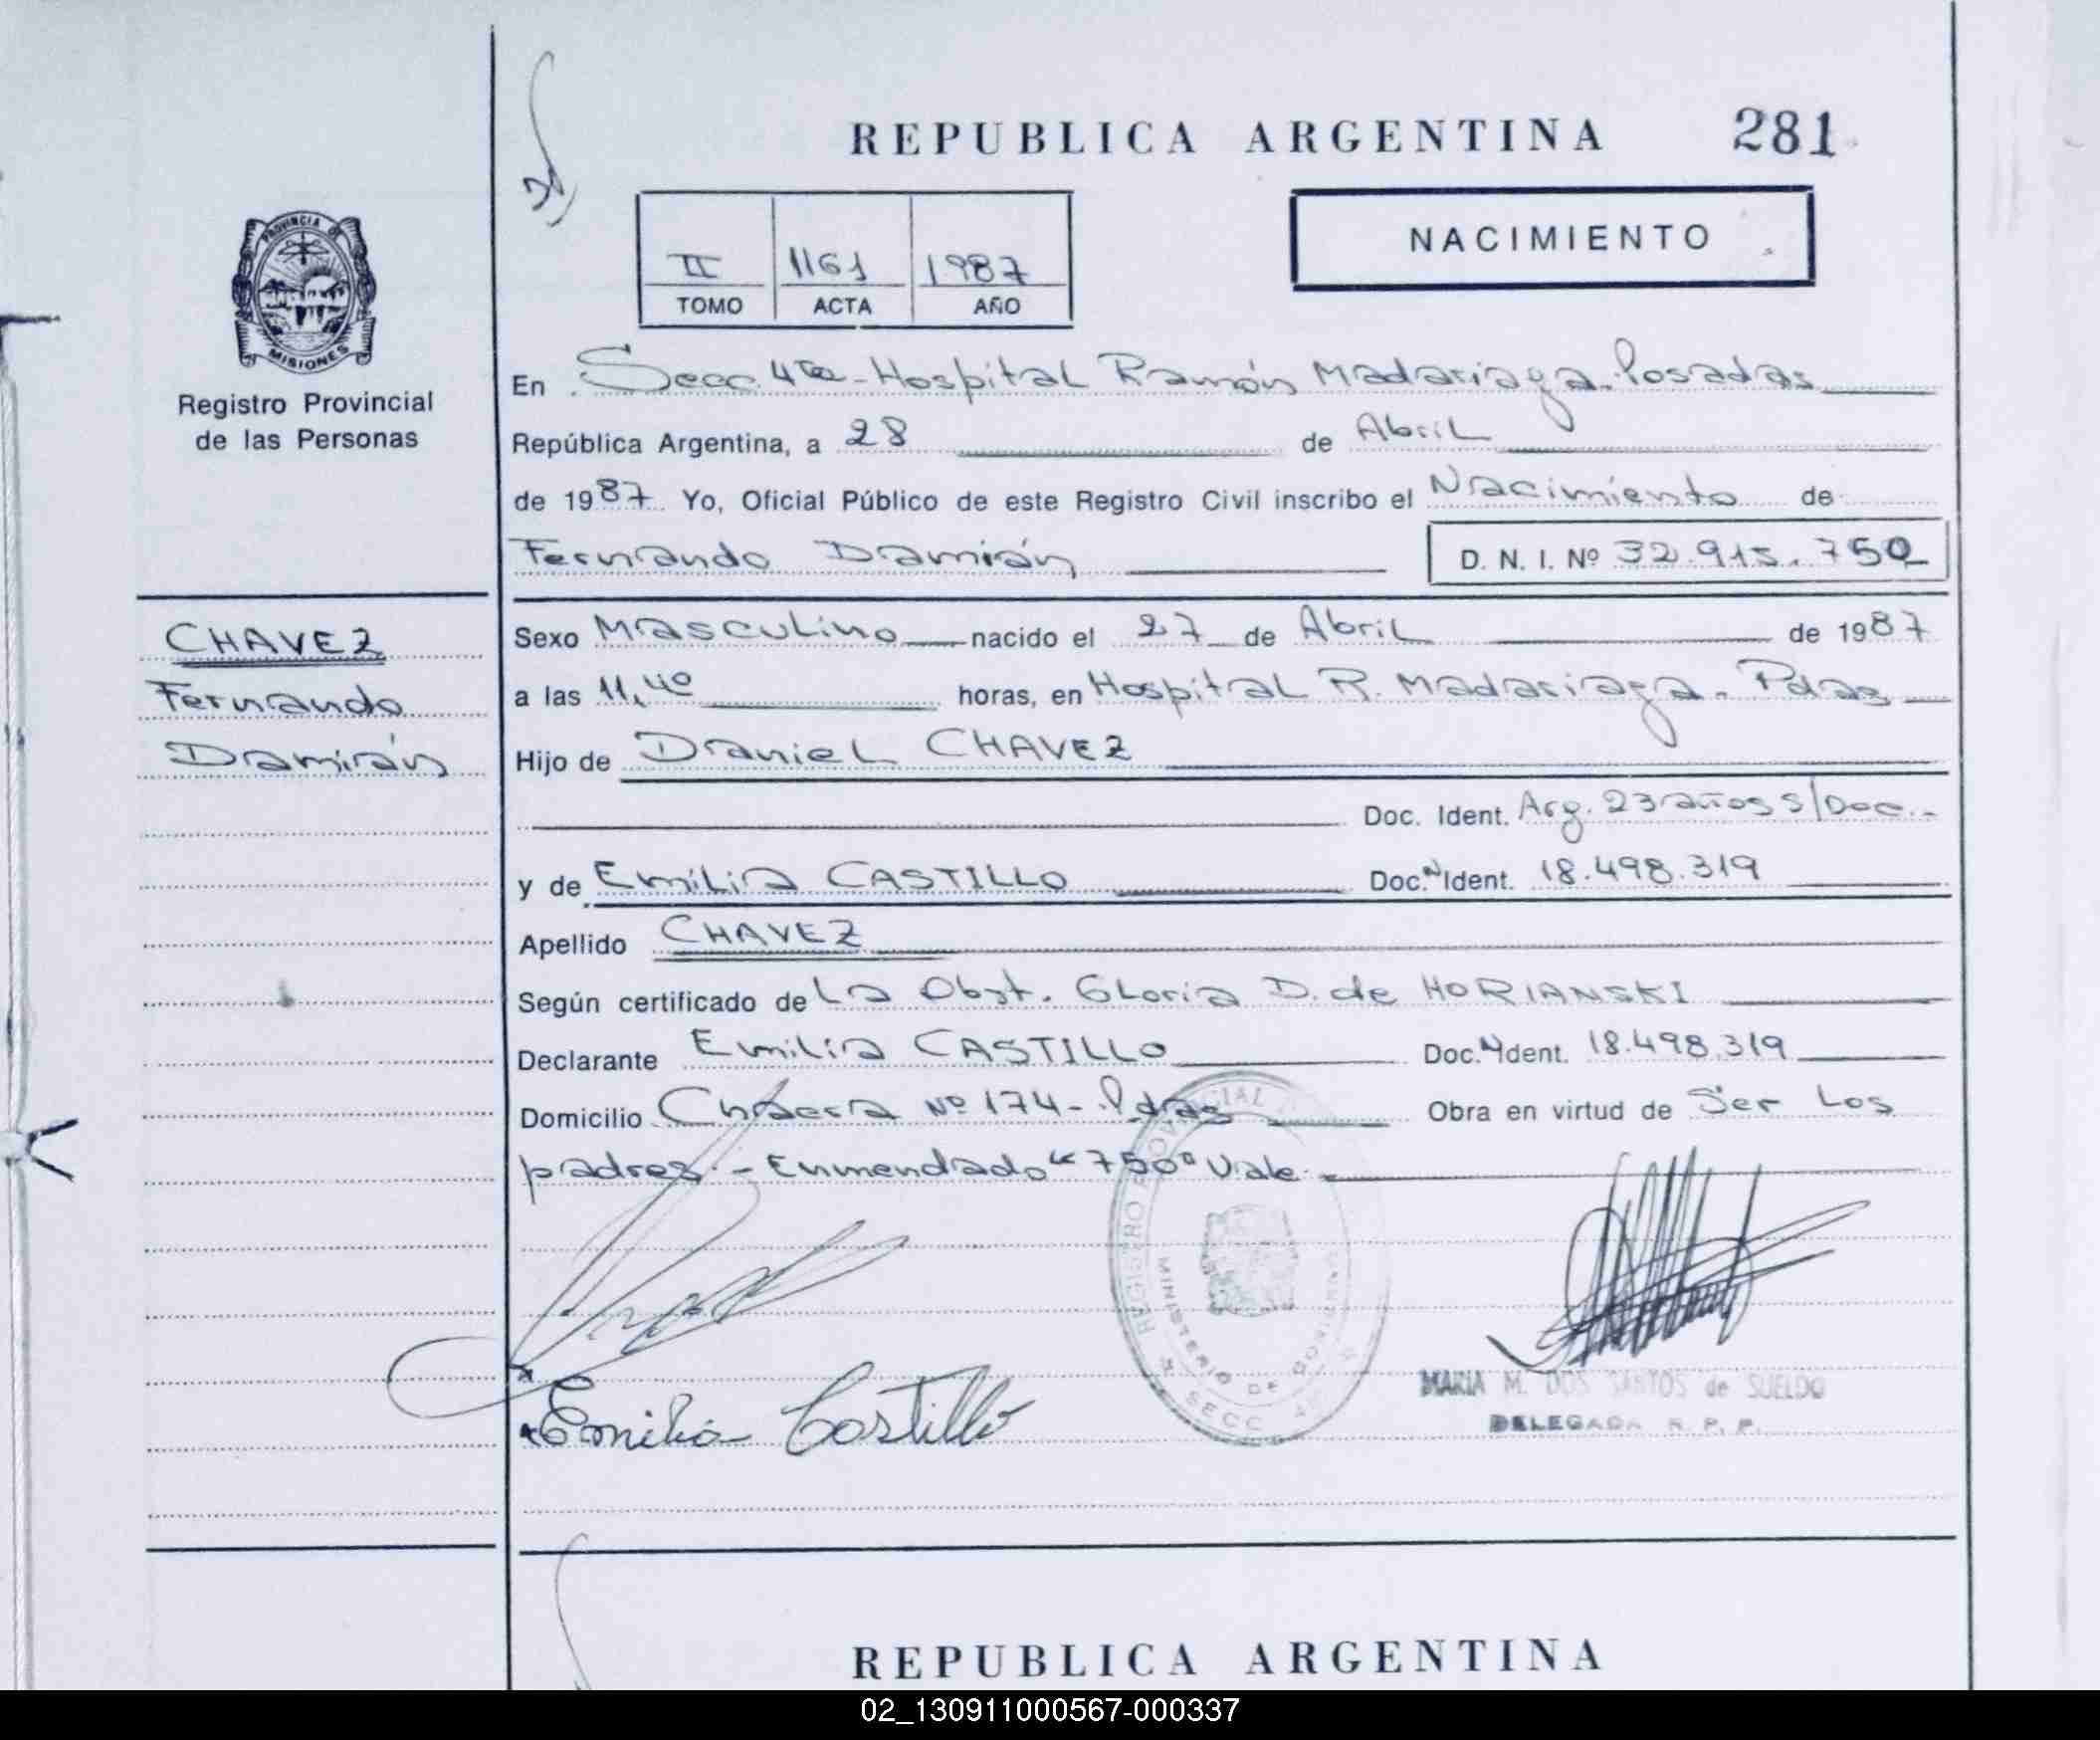 REPUBLICA ARGENTINA 281
PROVINCIA DE
MISIONES
Registro Provincial
de las Personas
II 1161 1987
TOMO ACTA AÑO
NACIMIENTO
En Secc. 4ta - Hospital Ramón Madariaga. Posadas
República Argentina, a 28 de Abril
de 1987. Yo, Oficial Público de este Registro Civil inscribo el Nacimiento de
Fernando Damián
D. N. I. Nº 32.915.750
CHAVEZ
Fernando
Damián
Sexo Masculino nacido el 27 de Abril de 1987
a las 11,40 horas, en Hospital R. Madariaga. Pdas
Hijo de Daniel CHAVEZ
Doc. Ident. Arg. 23 años s/Doc.-
y de Emilia CASTILLO Doc. N Ident. 18.498.319
Apellido CHAVEZ
Según certificado de La Obst. Gloria D. de HORIANSKI
Declarante Emilia CASTILLO Doc. N Ident. 18.498.319
Domicilio Chacra Nº 174 - Pdas Obra en virtud de Ser Los
padres. - Enmendado "750" Vale.
REGISTRO PROVINCIAL
MINISTERIO DE GOBIERNO
SECC 4
Emilia Castillo
MARIA M. DOS SANTOS de SUELDO
DELEGADA R. P. P.
REPUBLICA ARGENTINA
02_130911000567-000337